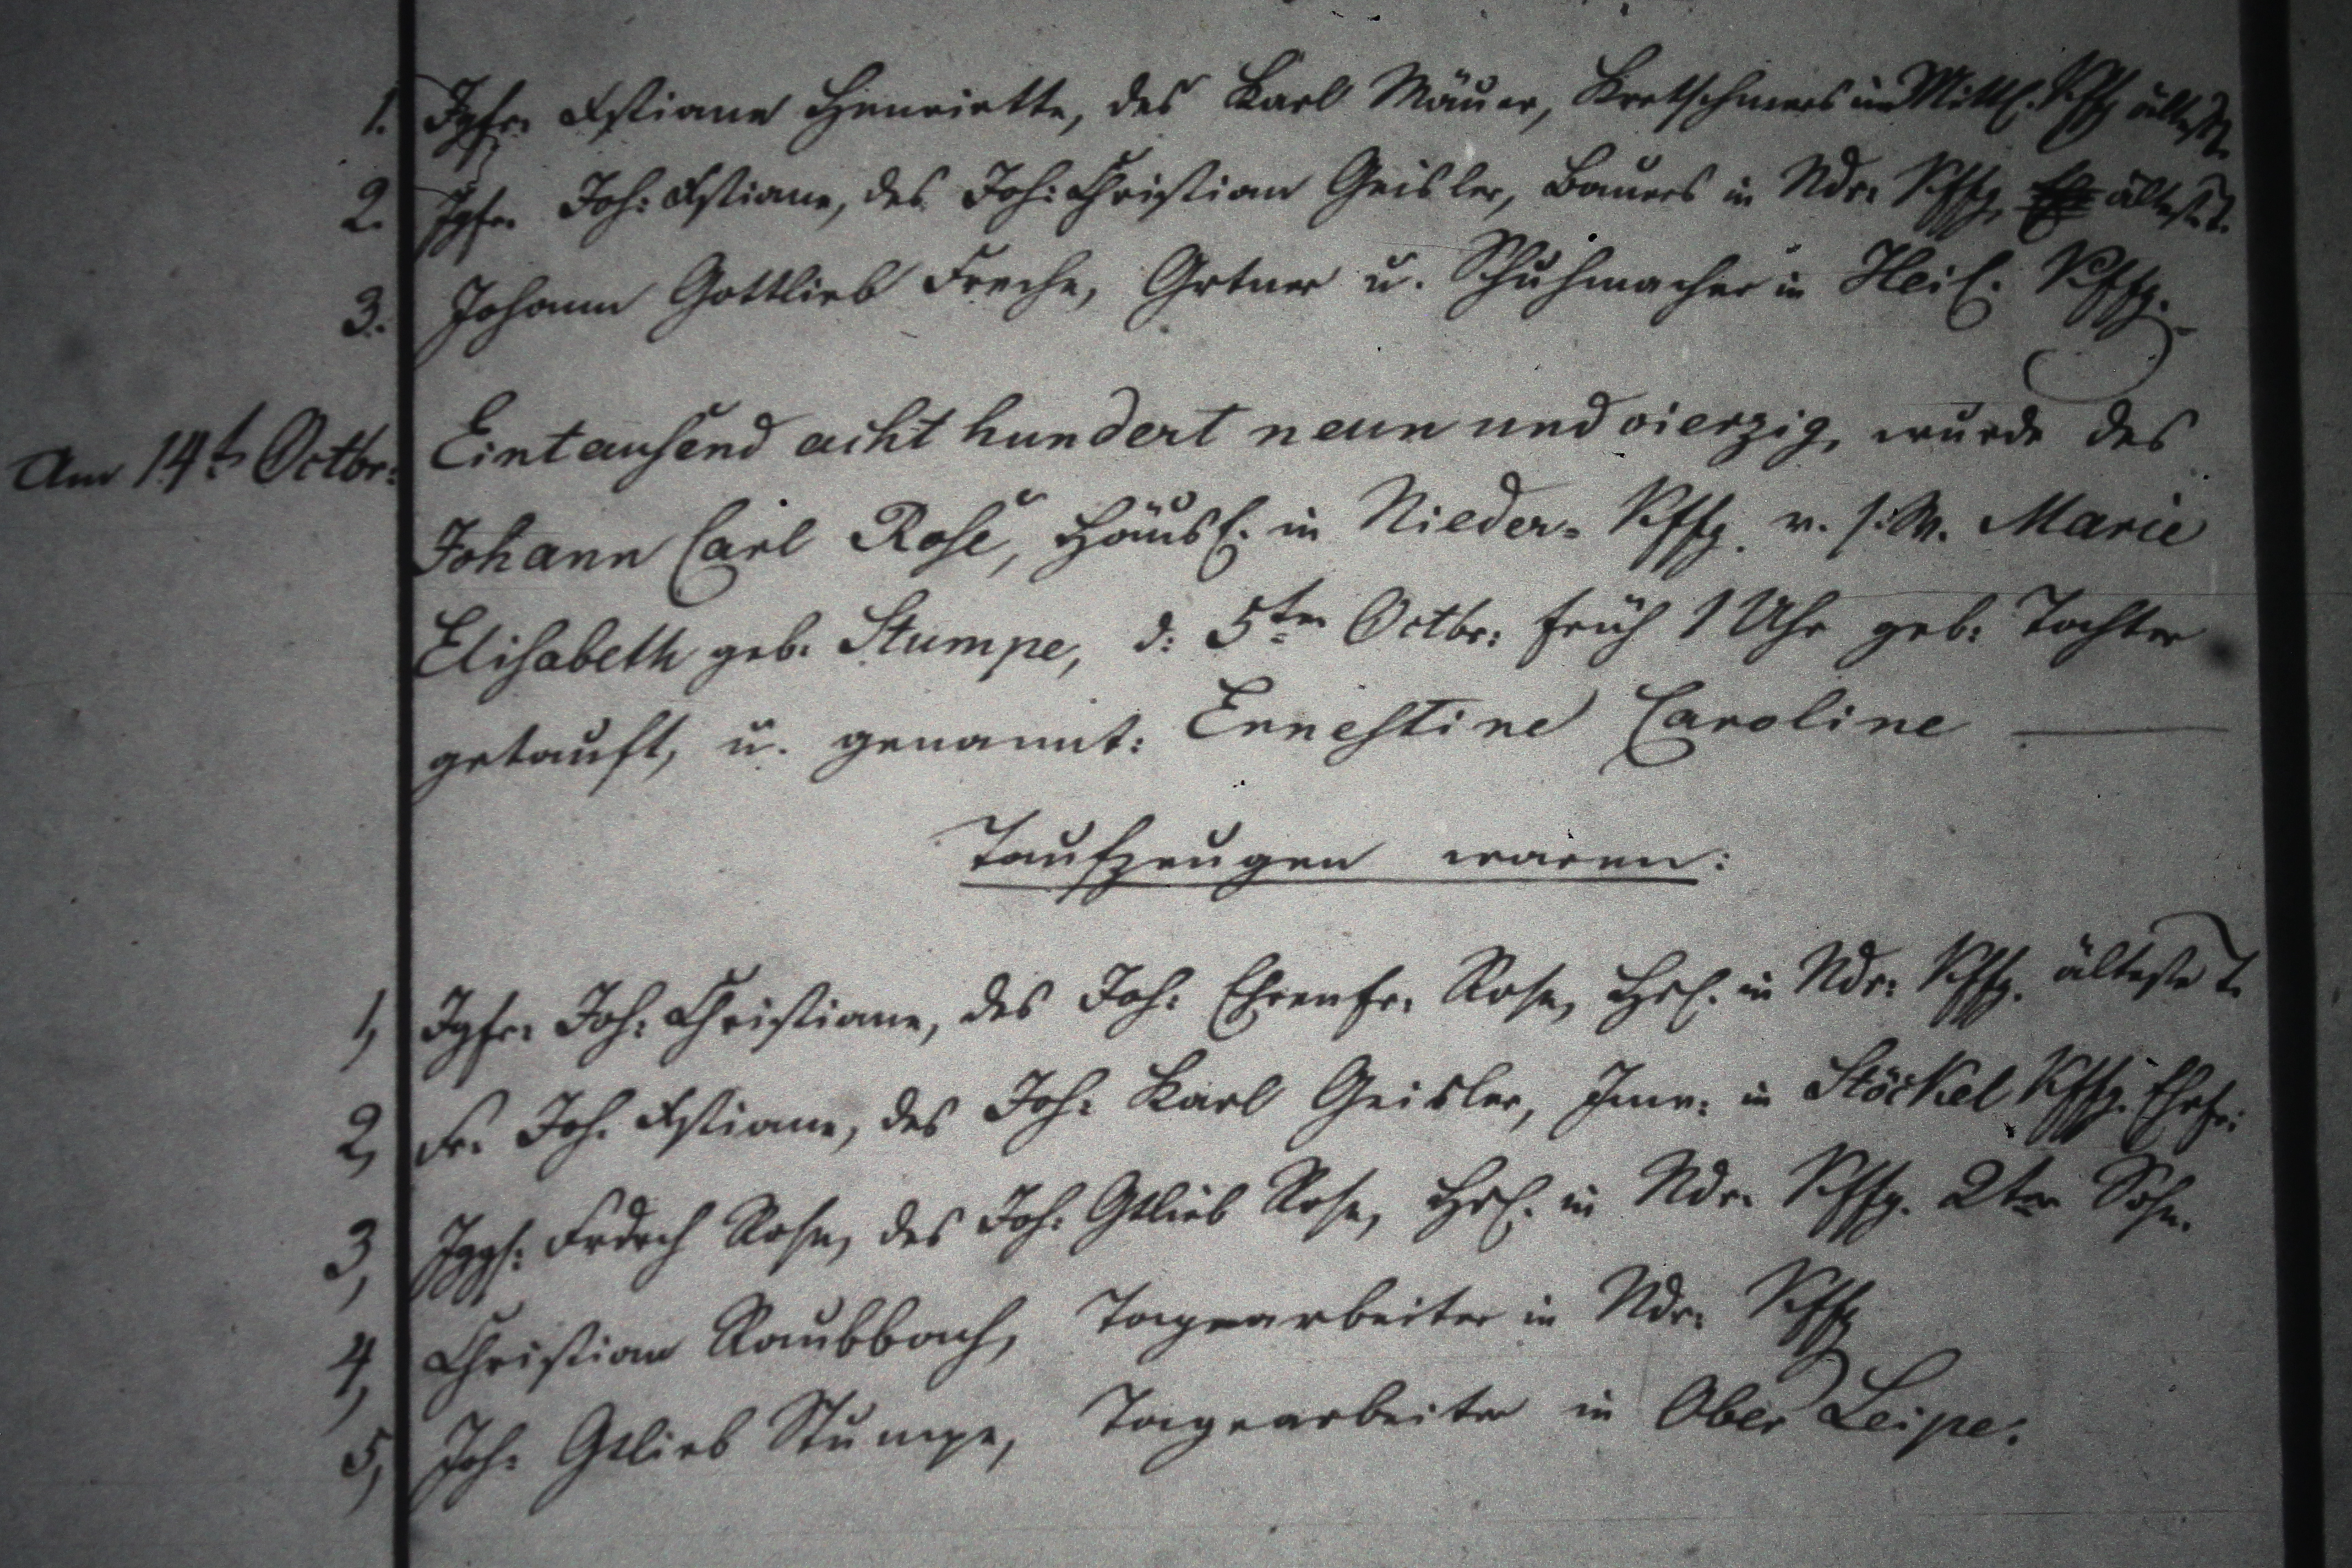 1. Igfr. Xstiane Henriette, des Karl Mäuer, Kretschmers in Mittl. Kffg älteste T.
2. Igfr. Joh: Xstiane, des Joh: Christian Geisler, Bauers in Ndr. Kffg. älteste T.
3. Johann Gottlieb Freche, Grtner u. Schuhmacher in Heil. Kffg.
Am 14t Octbr: Eintausend acht hundert neun und vierzig, wurde des
Johann Carl Rose, Häusl. in Nieder-Kffg. v. s: W. Marie
Elisabeth geb. Stumpe, d: 5ten Octbr: früh 1 Uhr geb: Tochter
getauft, u. genannt: Ernestine Caroline
Taufzeugen waren:
1, Igfr. Joh: Christiane, des Joh: Ehrenfr. Rose, Hsl. in Ndr: Kffg. älteste T.
2, Fr. Joh. Xstiane, des Joh: Karl Geisler, Inw: in Stöckel Kffg. Ehefr:
3, Iggs: Frdrch Rose, des Joh: Gtlieb Rose, Hsl. in Ndr. Kffg. 2ter Sohn.
4, Christian Raubbach, Tagearbeiter in Ndr. Kffg
5, Joh: Gtlieb Stumpe, Tagearbeiter in Ober Leipe.